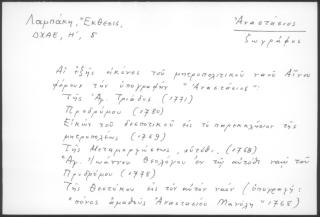 Λαμπάκη, Ἔκθεσις,
ΔΧΑΕ, Η΄, 5
Ἀναστάσιος
ζωγράφος
Αἱ ἑξῆς εἰκόνες τοῦ μητροπολιτικοῦ ναοῦ Αἴνου
φέρουν τὴν ὑπογραφήν "Ἀναστάσιος":
Τῆς Ἁγ. Τριάδος (1771)
Προδρόμου (1780)
Εἰκών τοῦ δεσποτικοῦ εἰς τὸ παρεκκλήσιον τῆς
μητροπόλεως (1759)
Τῆς Μεταμορφώσεως, αὐτόθι. (1758)
Ἁγ. Ἰωάννου Θεολόγου ἐν τῷ αὐτόθι ναῷ τοῦ
Προδρόμου (1775)
Τῆς Θεοτόκου εἰς τὸν αὐτὸν ναόν (ὑπογραφή:
"πόνος ἀμαθοῦς Ἀναστασίου Μανόλη" 1765)